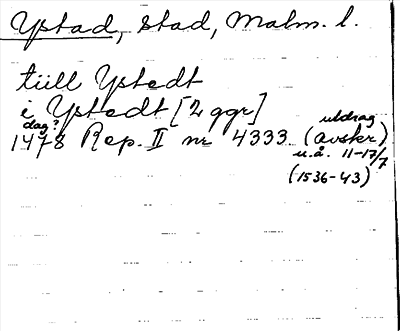 Ystad, stad, Malm. l.
tüll Ystedt
i Ystedt [2 ggr]
dag?
1478 Rep. II nr 4333 (avskr)
utdrag
u.å. 11-17/7
(1536-43)